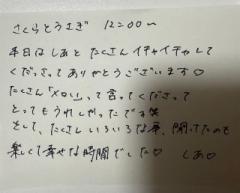 さくらとうさぎ 12:00〜
本日はしあと たくさん イチャイチャして
くださって ありがとうございます♡
たくさん「メロい」って言ってくださって
とっても うれしかったです笑
そして、たくさん いろいろな事、聞けたのも
楽しくて幸せな時間でした♡ しあ♡